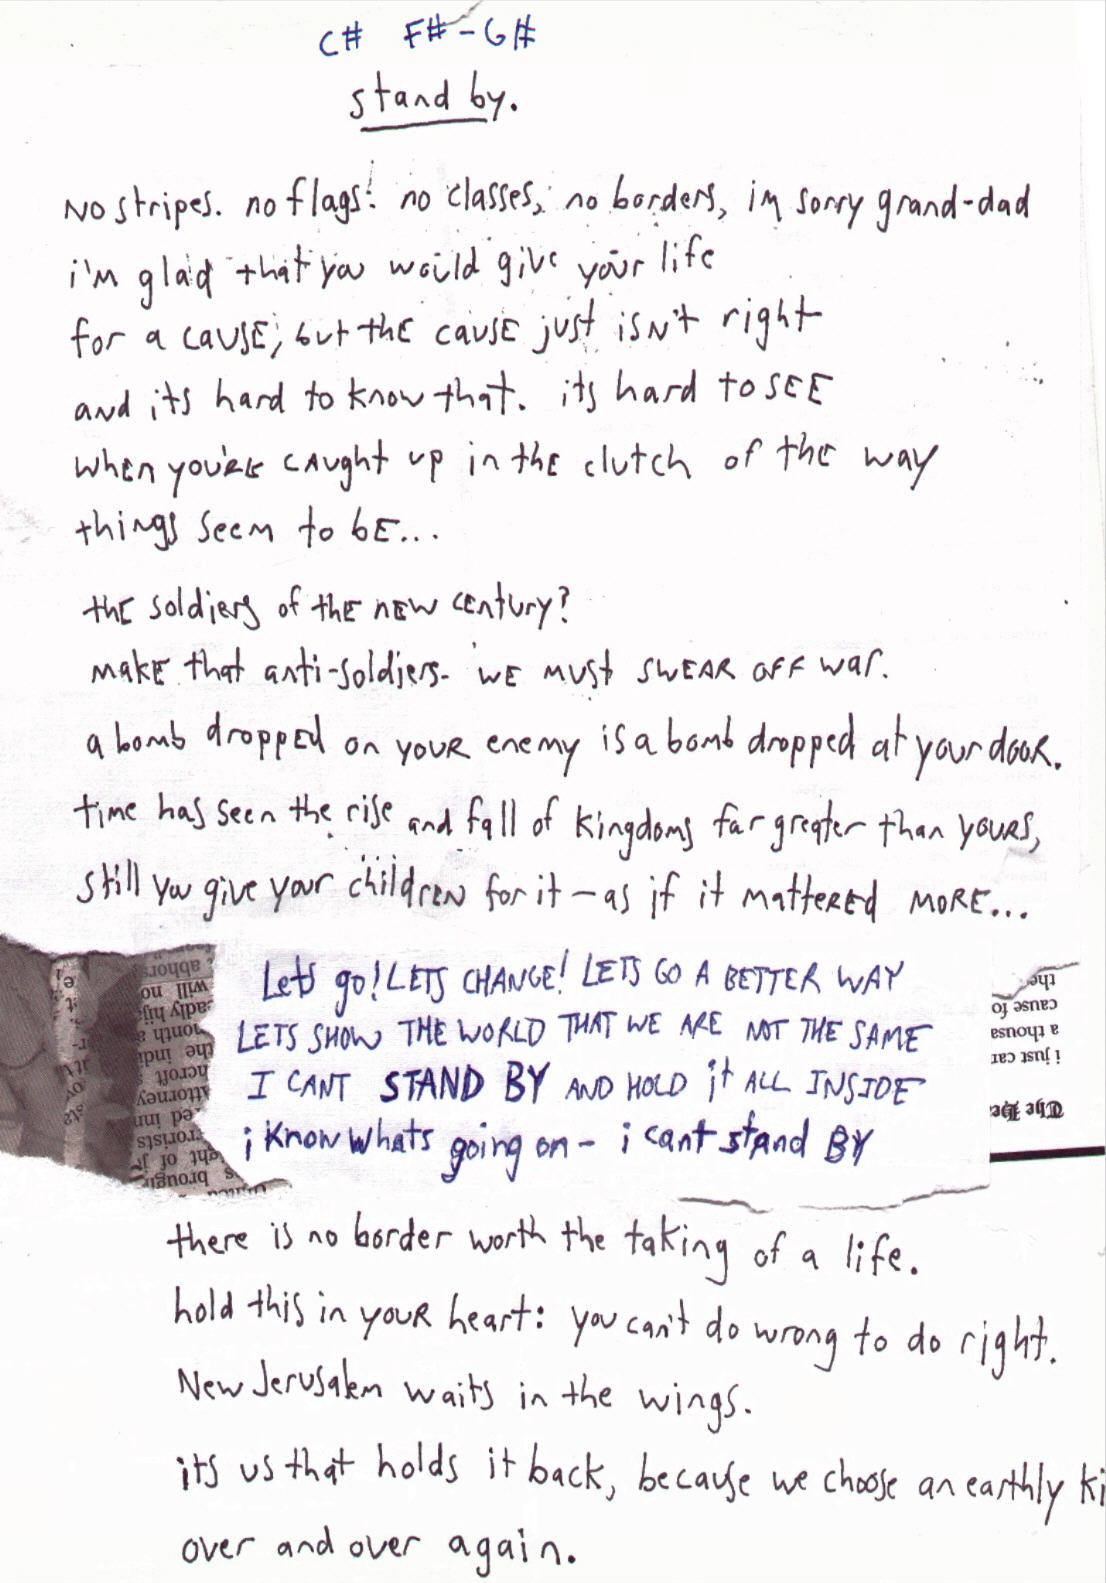 C# F#-G#
stand by.
No stripes. no flags! no classes, no borders, im sorry grand-dad
i'm glad that you would give your life
for a cause, but the cause just isn't right
and its hard to know that. its hard to see
when you're caught up in the clutch of the way
things seem to be...
the soldiers of the new century?
make that anti-soldiers- we must swear off war.
a bomb dropped on your enemy is a bomb dropped at your door.
time has seen the rise and fall of kingdoms far greater than yours,
still you give your children for it - as if it mattered more...
Lets go! LETS CHANGE! LETS GO A BETTER WAY
LETS SHOW THE WORLD THAT WE ARE NOT THE SAME
I CANT STAND BY AND HOLD it ALL INSIDE
i know whats going on - i cant stand BY
the
cause fo
a thousa
i just car
The
abhors
will no
the indi
Attorney
ght of
brough
there is no border worth the taking of a life.
hold this in your heart: you can't do wrong to do right.
New Jerusalem waits in the wings.
its us that holds it back, because we choose an earthly ki
over and over again.